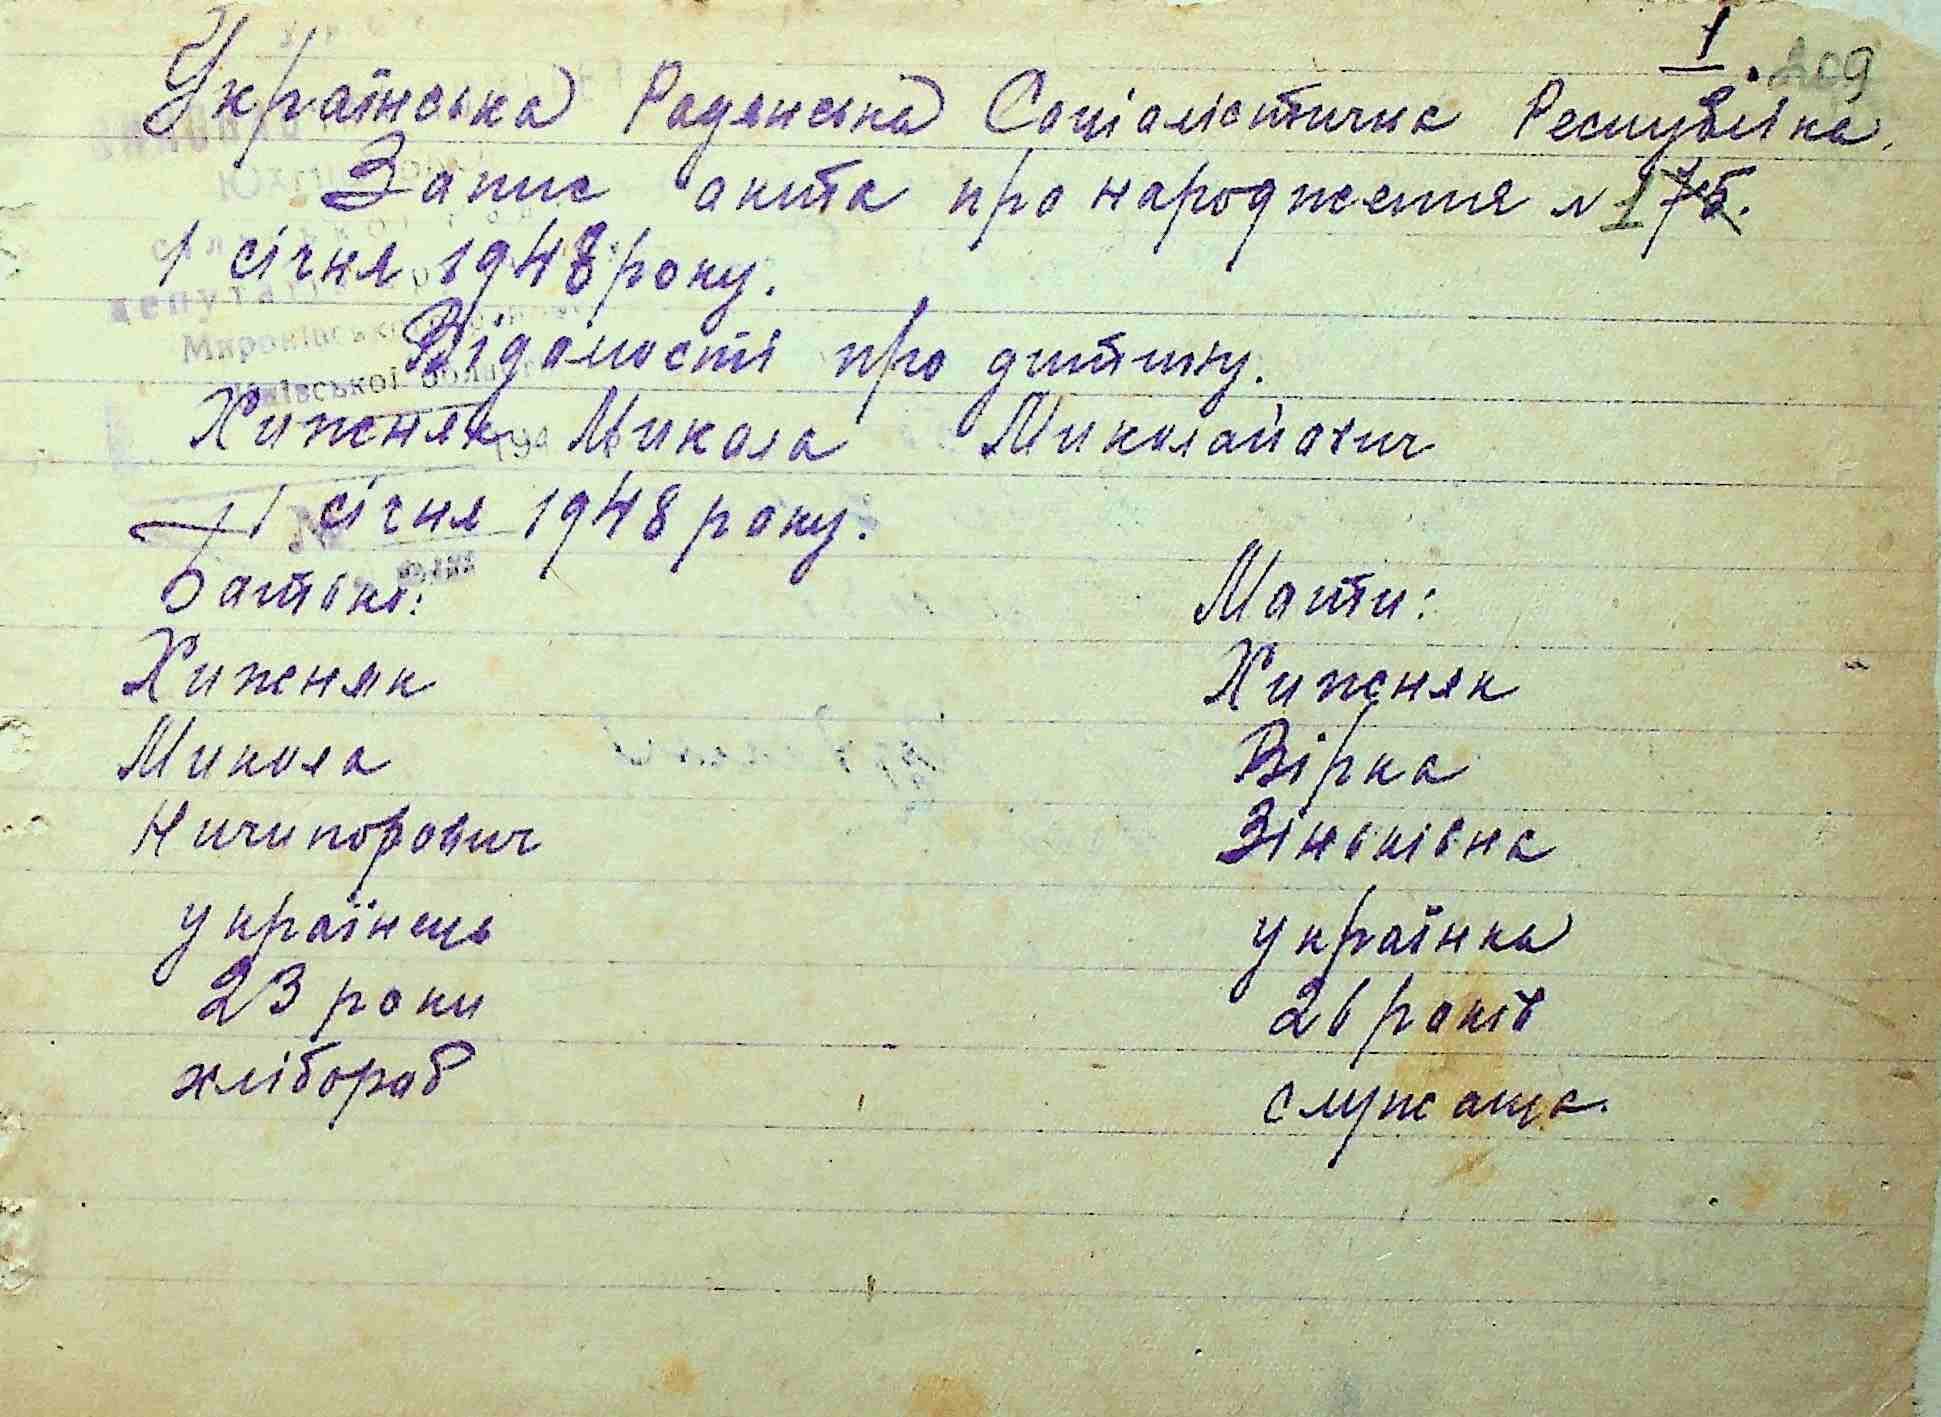 1. 209
Українська Радянська Соціалістична Республіка.
Запис акта про народження N 1 75.
1 січня 1948 року.
депутатів
Миронівського
Відомості про дитину.
Київської області
Хижняк Микола Миколайович
194
1 січня 1948 року.
батько: Мати:
Хижняк Хижняк
Микола Вірка
Ничипорович Зіньківна
українець українка
23 роки 26 років
хлібороб служаща.